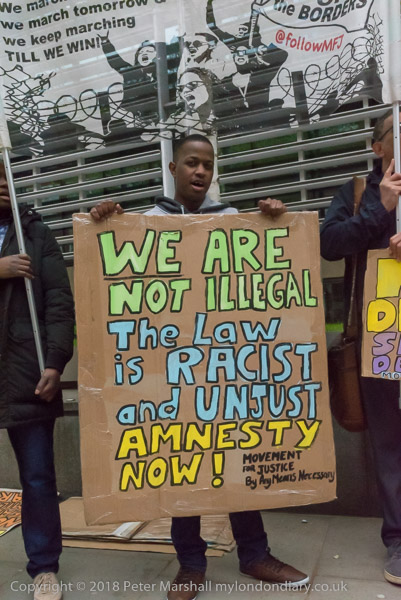 We march
we march tomorrow &
we keep marching
TILL WE WIN!
the BORDERS
@followMFJ
WE ARE
NOT ILLEGAL
The Law
is RACIST
and UNJUST
AMNESTY
NOW!
MOVEMENT
FOR
JUSTICE
By Any Means Necessary
Copyright © 2018 Peter Marshall mylondondiary.co.uk